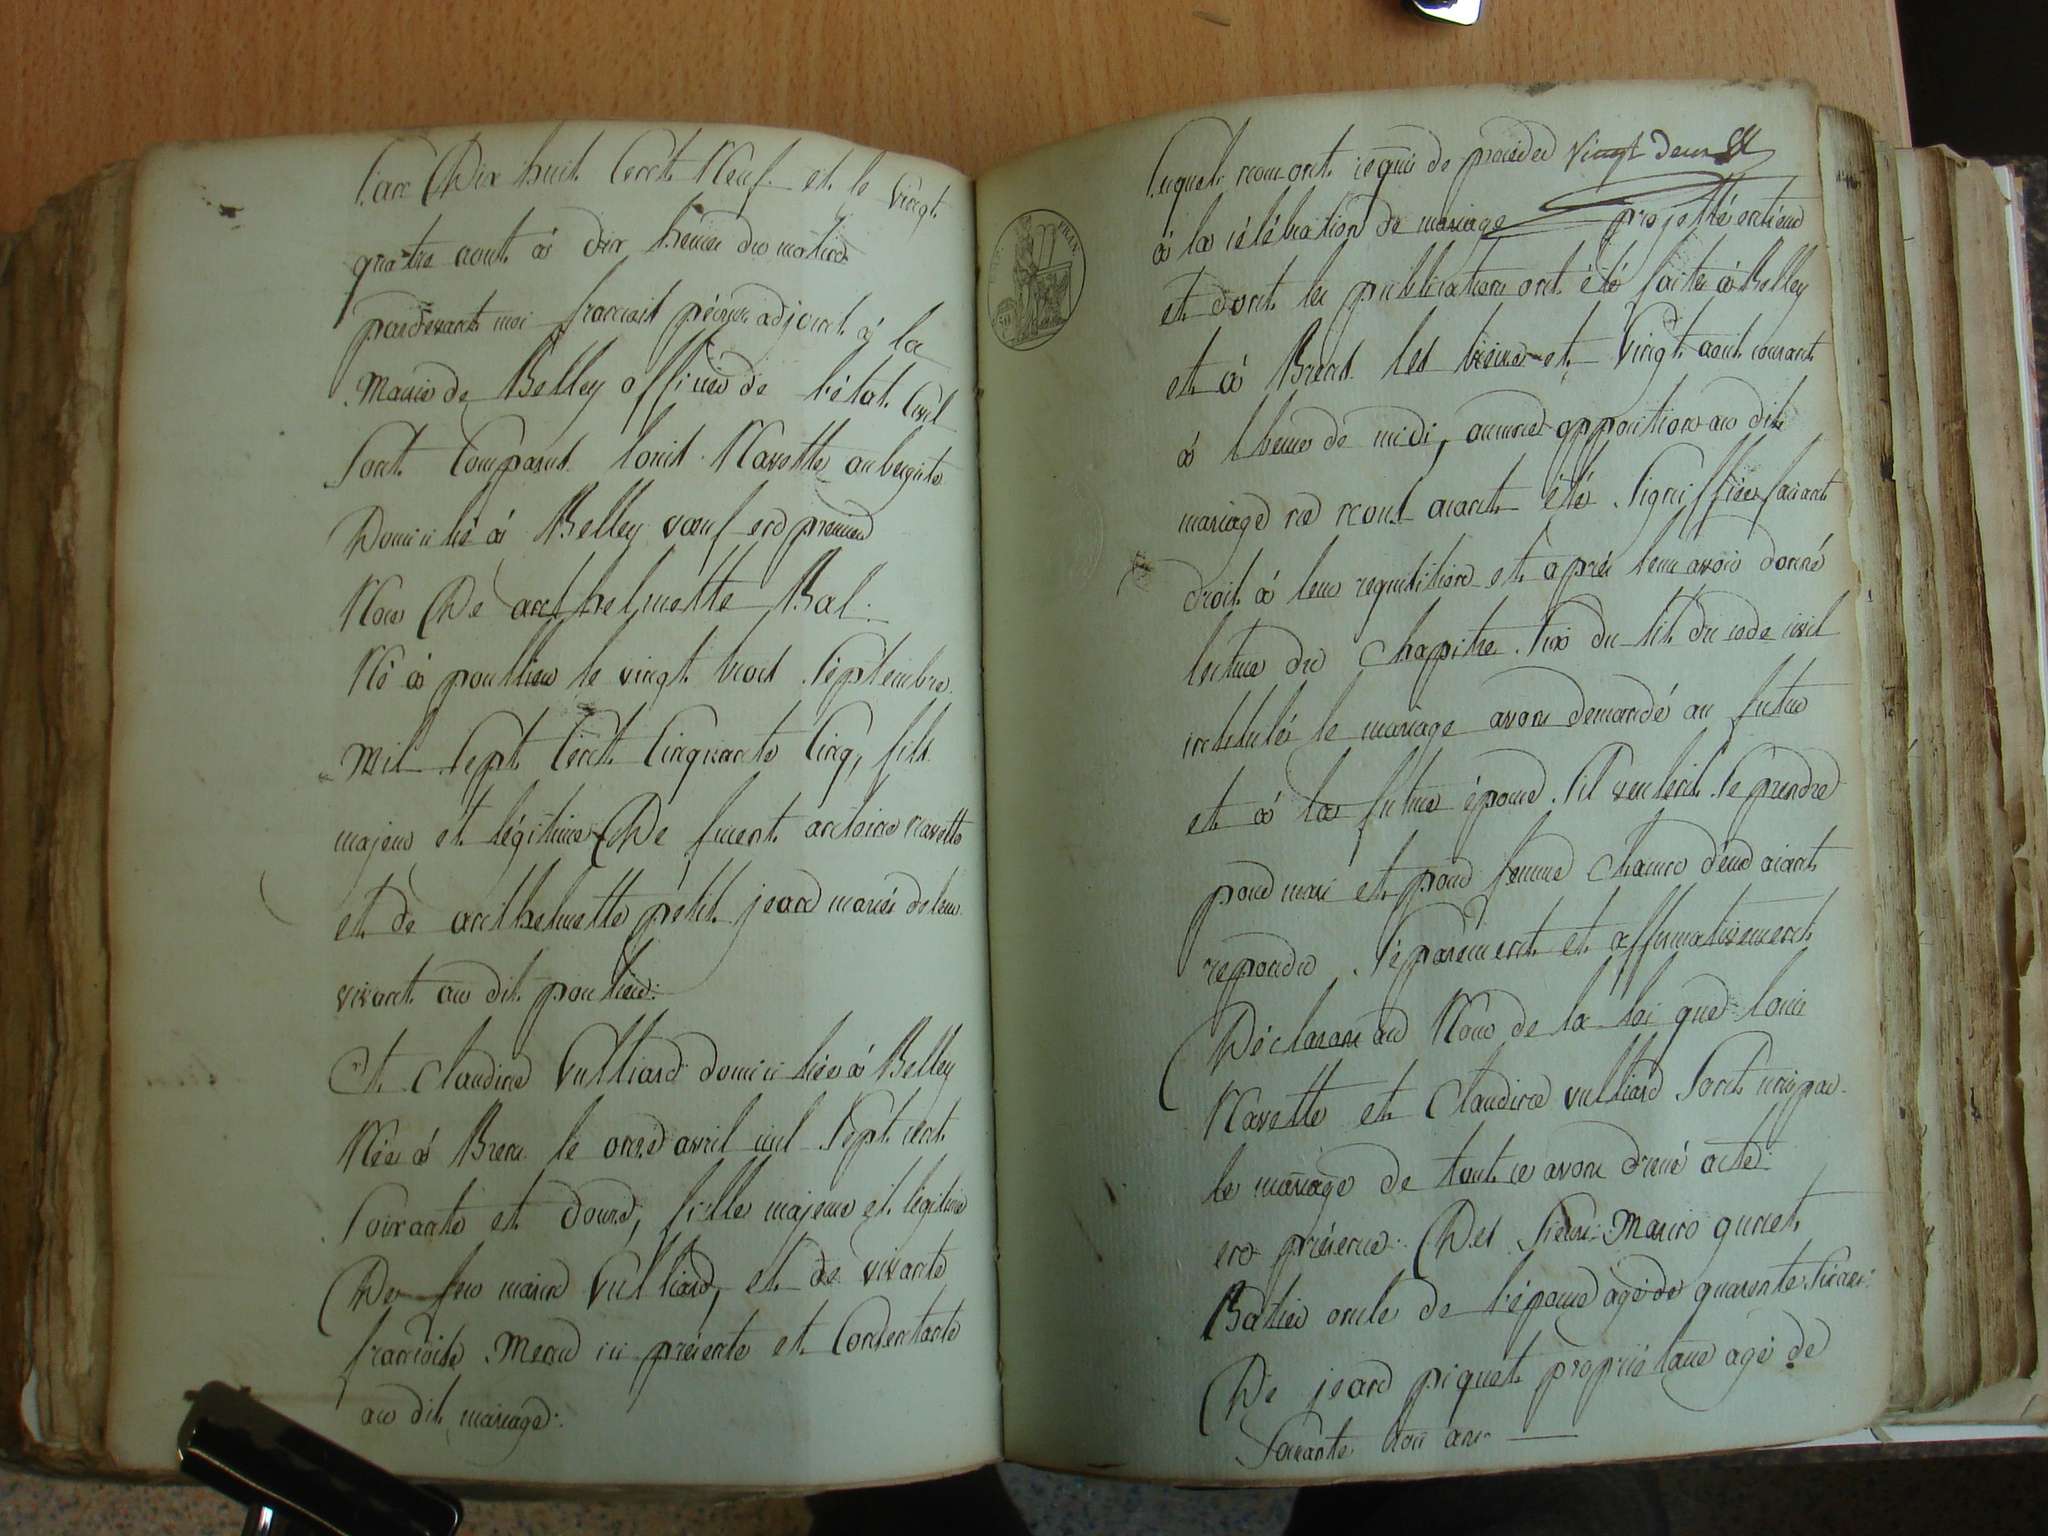 L'an Dix huit Cent Neuf et le vingt
quatre aout à dix heures du matin
pardevant moi francois périer adjoint à la
Mairie de Belley officier de l'état Civil
Sont Comparus louis Navette aubergiste
Domicilié à Belley vœuf en premier
Noces De anthelmette Bal.
Né à poullieu le vingt trois Septembre
Mil Sept Cent Cinquante Cinq, fils
majeur et légitime De fuent antoine navette
et de anthelmette petit jean mariés de leur
vivant au dit poulieu.
Et Claudine Vulliard domiciliée à Belley
Née à Brens le onze avril mil Sept cent
Soixante et douze, fille majeure et légitime
De feu Vulliard, et de vivante
francoise ici présente et Consentante
au dit mariage.
Lesquels nous ont requis de proceder Vingt deux
à la célébration de mariage projetté entieux
et dont les publications ont été faites à Belley
et à Brens les treize et Vingt aout courant
à l heure de midi, aucune opposition au dit
mariage ne nous aiant été Signiffiée faisant
droit à leur requisition et après leur avoir donné
lecture du Chapitre Six du tit. du code civil
intitulés le mariage avons demandé au futur
et à la future épouse S'il veulent Se prendre
pour mari et pour femme chacun d'eux aiant
repondu Séparément et affirmativement
Déclarons au Nom de la loi que louis
Navette et Claudine vulliard Sont unis par
le mariage de tout ce avons drecé acte
en présence Des Sieurs gunet
Batier oncle de l'épouse agé de quarente Six ans
De jean piquet propriétaire agé de
Soixante trois ans